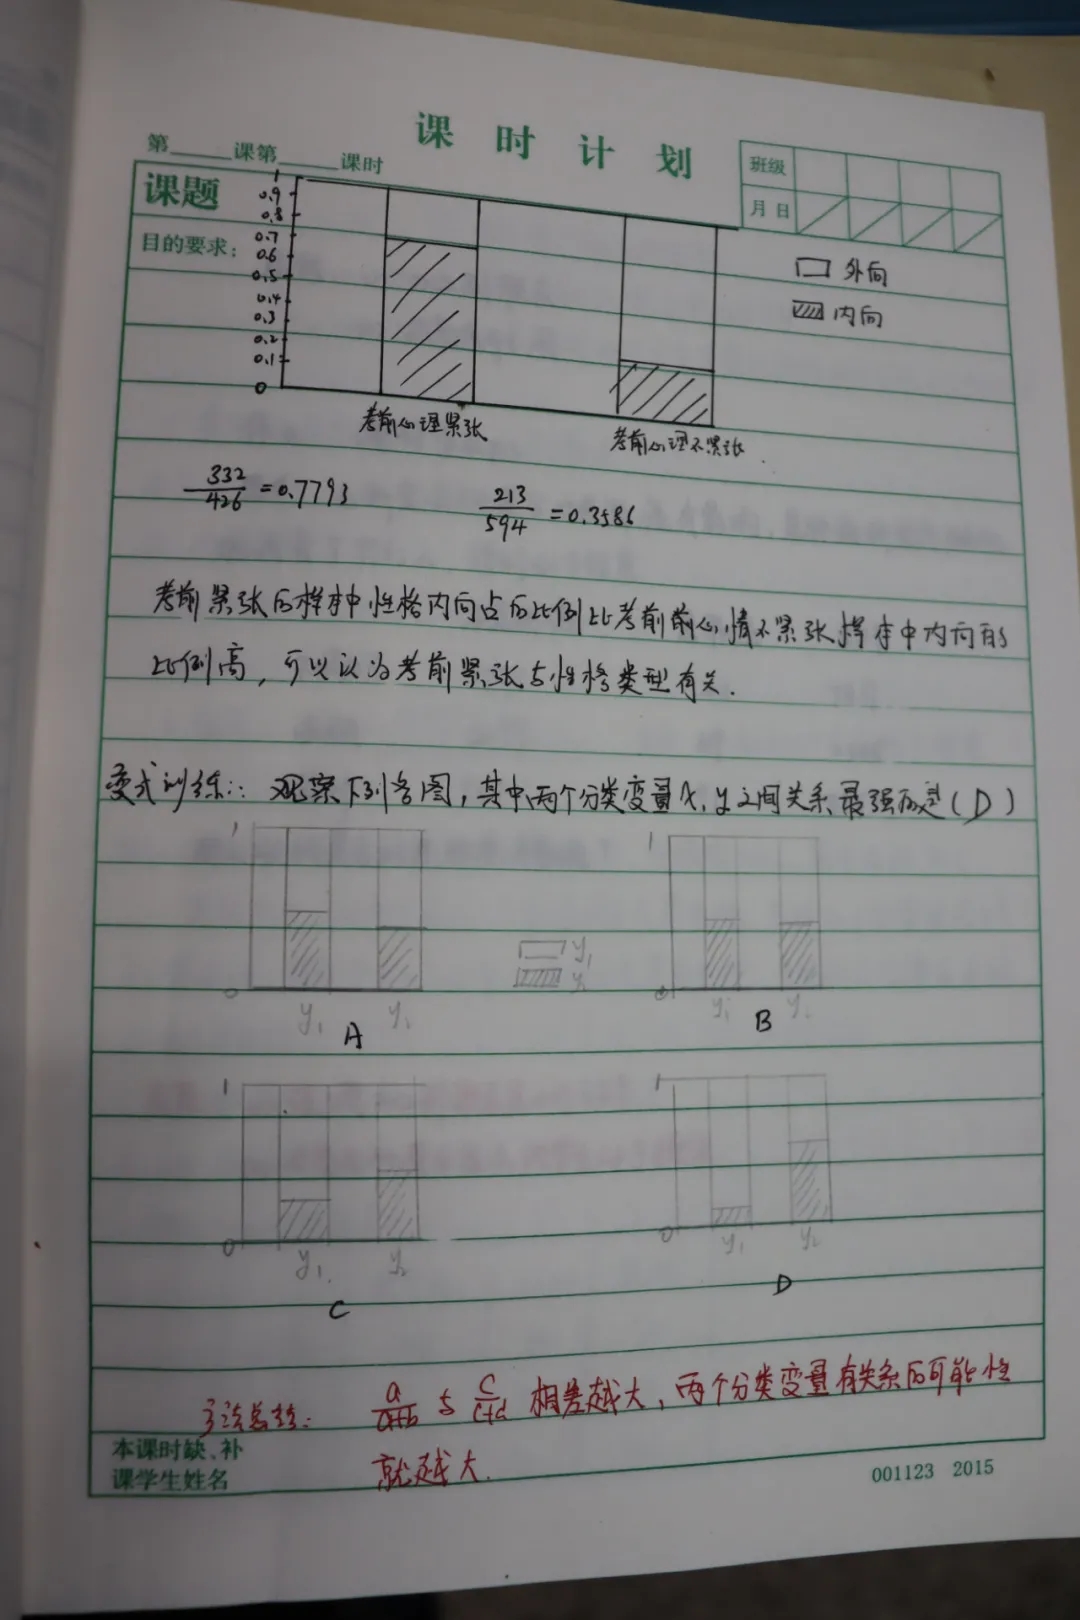 课时计划
第____课第____课时
班级
课题
月 日
目的要求:
1
0.9
0.8
0.7
0.6
0.5
0.4
0.3
0.2
0.1
0
外向
内向
考前心理紧张
考前心理不紧张
332/426 = 0.7793
213/594 = 0.3586
考前紧张的样本中性格内向占的比例比考前前心情不紧张样本中内向的
比例高,可以认为考前紧张与性格类型有关.
变式训练:: 观察下列各图,其中两个分类变量x,y之间关系最强的是(D)
1
1
y₁
0
y₁
A
B
1
1
0
y₁
y₂
0
y₁
y₂
C
D
方法总结: a/a+b 与 c/c+d 相差越大,两个分类变量有关系的可能性
就越大.
本课时缺、补
课学生姓名
001123 2015